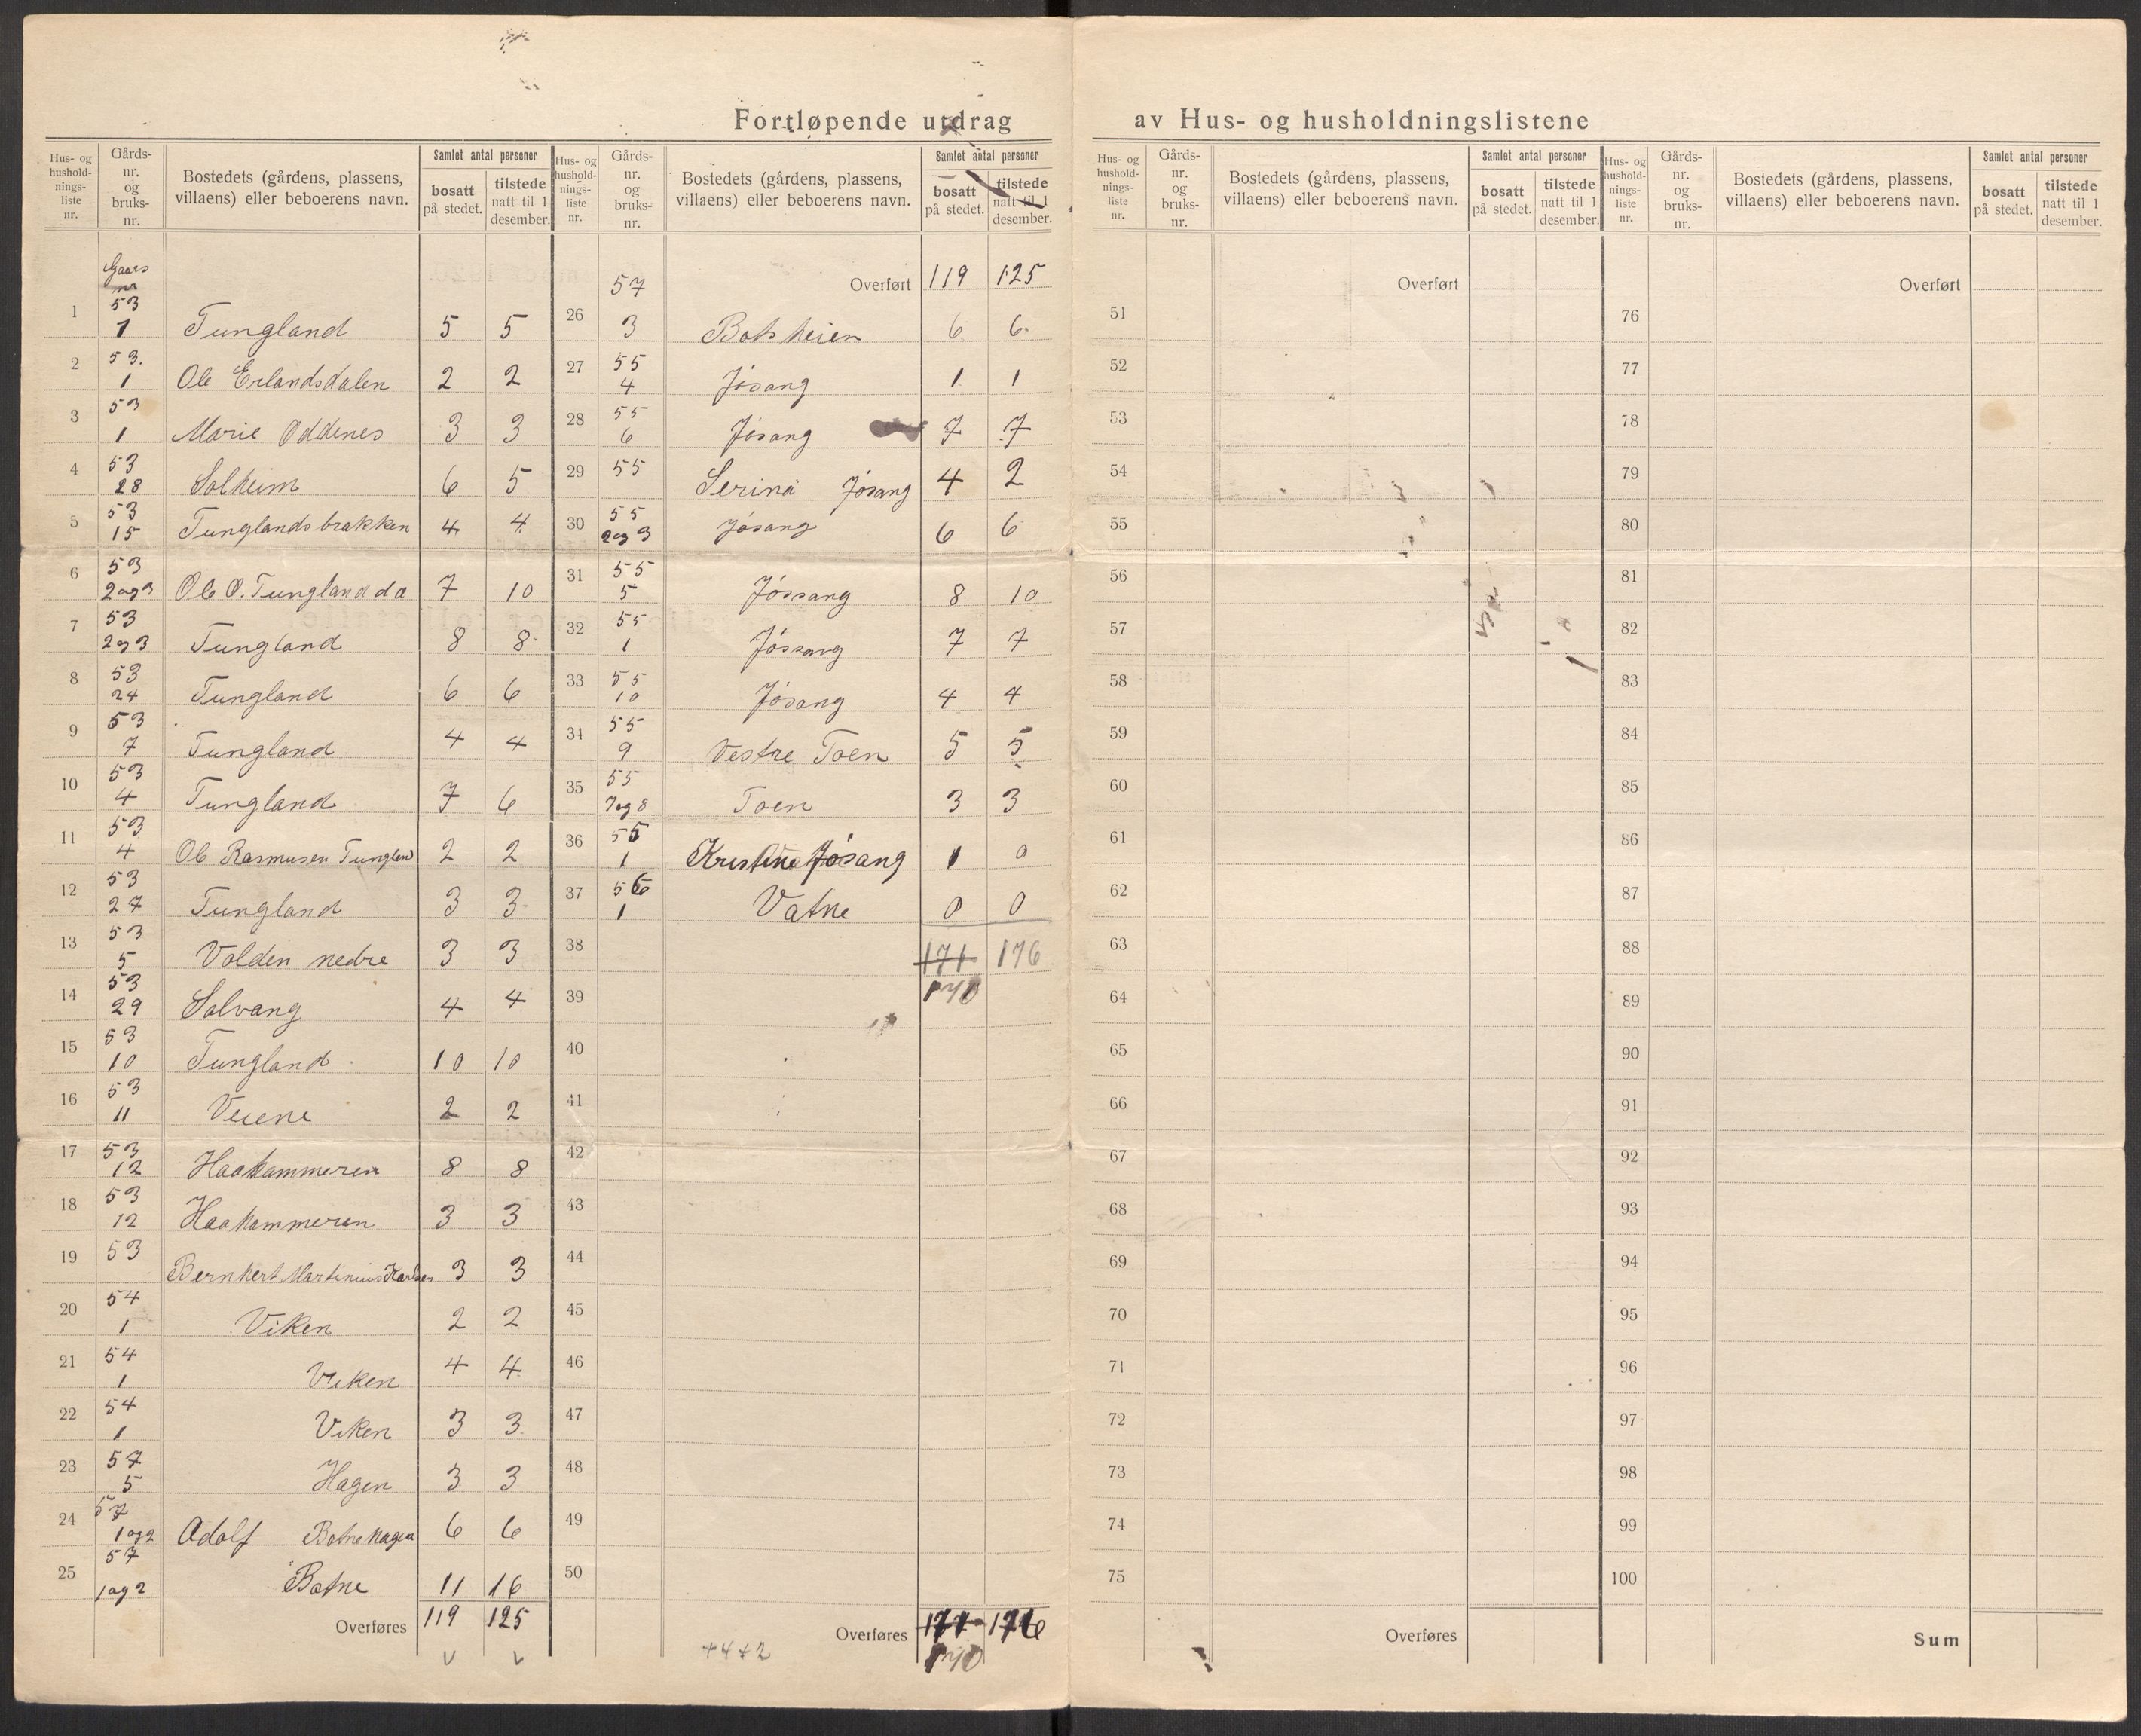 Fortløpende utdrag av Hus- og husholdningslistene
Hus- og hushold-nings-liste nr. Gårds-nr. og bruks-nr. Bostedets (gårdens, plassens, villaens) eller beboerens navn. Samlet antal personer bosatt på stedet. tilstede natt til 1 desember.
Hus- og hushold-nings-liste nr. Gårds-nr. og bruks-nr. Bostedets (gårdens, plassens, villaens) eller beboerens navn. Samlet antal personer bosatt på stedet. tilstede natt til 1 desember.
Hus- og hushold-nings-liste nr. Gårds-nr. og bruks-nr. Bostedets (gårdens, plassens, villaens) eller beboerens navn. Samlet antal personer bosatt på stedet. tilstede natt til 1 desember.
Hus- og hushold-nings-liste nr. Gårds-nr. og bruks-nr. Bostedets (gårdens, plassens, villaens) eller beboerens navn. Samlet antal personer bosatt på stedet. tilstede natt til 1 desember.
Gaars nr
1 53 1 Tungland 5 5
2 53. 1 Ole Erlandsdalen 2 2
3 53 1 Marie Oddenes 3 3
4 53 28 Solheim 6 5
5 53 15 Tunglandsbrakken 4 4
6 53 2 og 3 Ole O. Tungland da 7 10
7 53 2 og 3 Tungland 8 8
8 53 24 Tungland 6 6
9 53 7 Tungland 4 4
10 53 4 Tungland 7 6
11 53 4 Ole Rasmusen Tungland 2 2
12 53 27 Tungland 3 3
13 53 5 Volden nedre 3 3
14 53 29 Solvang 4 4
15 53 10 Tungland 10 10
16 53 11 Veiene 2 2
17 53 12 Haakammeren 8 8
18 53 12 Haakammeren 3 3
19 53 Bernhert Martinius Karlsen 3 3
20 54 1 Viken 2 2
21 54 1 Viken 4 4
22 54 1 Viken 3 3
23 57 5 Hagen 3 3
24 57 1 og 2 Adolf Botnehagen 6 6
25 57 1 og 2 Botne 11 16
Overføres 119 125
Overført 119 125
26 57 3 Botsheien 6 6
27 55 4 Jøsang 1 1
28 55 6 Jøsang 7 7
29 55 Serina Jøsang 4 2
30 55 2 og 3 Jøsang 6 6
31 55 5 Jøssang 8 10
32 55 1 Jøssang 7 7
33 55 10 Jøsang 4 4
34 55 9 Vestre Toen 5 5
35 55 7 og 8 Toen 3 3
36 55 1 Kristine Jøsang 1 0
37 56 1 Vatne 0 0
38 171 176
39 170
40
41
42
43
44
45
46
47
48
49
50
Overføres 171 176
+4+2 170
Overført
51
52
53
54
55
56
57
58
59
60
61
62
63
64
65
66
67
68
69
70
71
72
73
74
75
Overføres
Overført
76
77
78
79
80
81
82
83
84
85
86
87
88
89
90
91
92
93
94
95
96
97
98
99
100
Sum